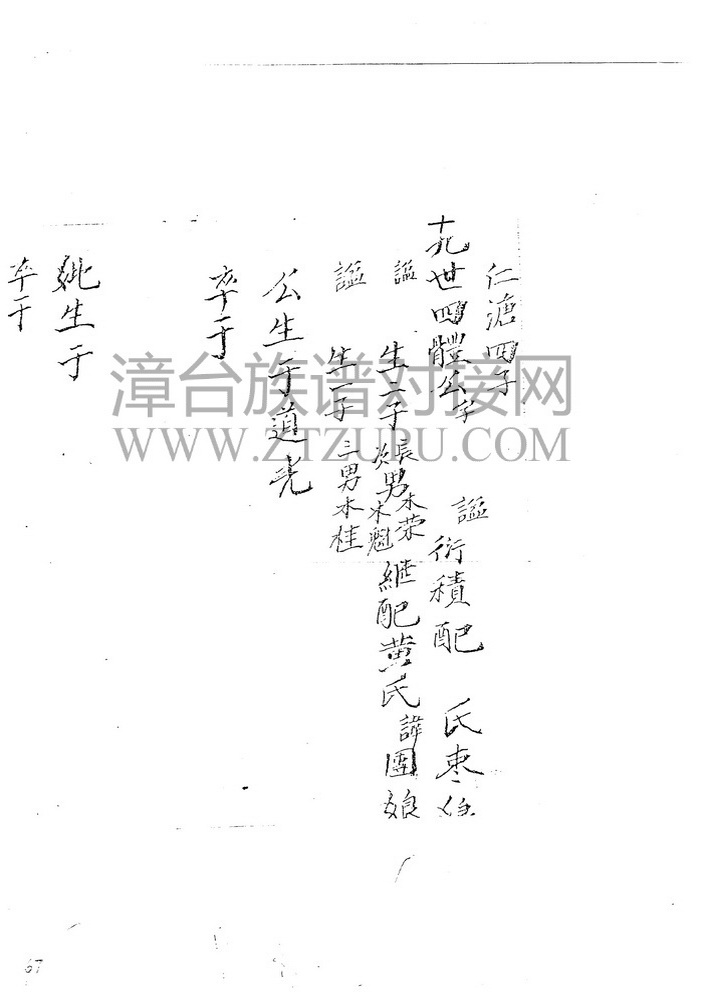 仁漶四子
十九世四體公字 謚衍積配 氏枣
謚 生二子 長男木荣 次男木魁 継配黄氏諱團娘
謚 生一子 三男木桂
公生于道光
卒于
妣生于
卒于
67
漳台族谱对接网
WWW.ZTZUPU.COM